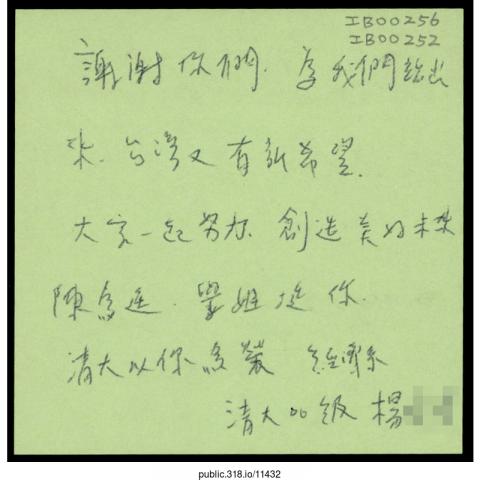 IB00256
IB00252
謝謝你們.為我們站出
來.台灣又有新希望.
大家一起努力 創造美好未來
陳為廷.學姐挺你.
清大以你為榮 經濟系
清大00級 楊
public.318.io/11432